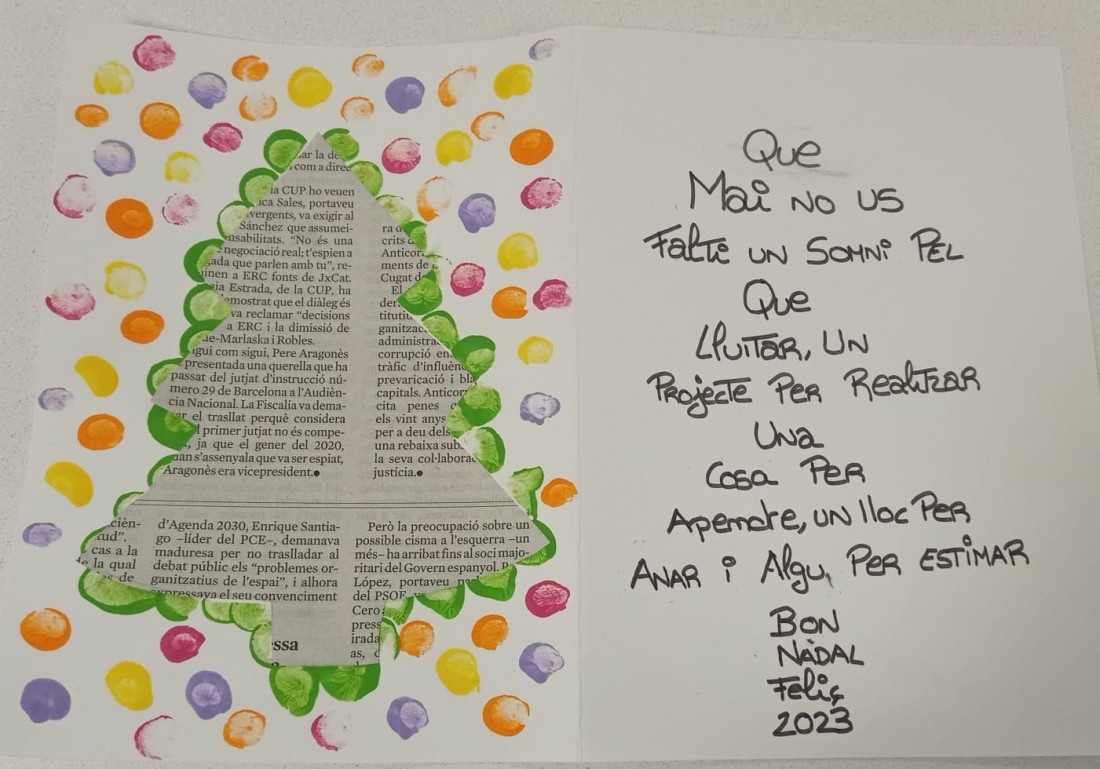 ar la de
com a direc
ia CUP ho veuen
ica Sales, portaveu
vergents, va exigir al
Sánchez que assumei-
nsabilitats. “No és una
negociació real; t'espien a
gada que parlen amb tu”, re-
uinen a ERC fonts de JxCat.
ia Estrada, de la CUP, ha
emostrat que el diàleg és
va reclamar “decisions
a ERC i la dimissió de
de-Marlaska i Robles.
igui com sigui, Pere Aragonès
presentada una querella que ha
passat del jutjat d'instrucció nú-
mero 29 de Barcelona a l'Audièn-
cia Nacional. La Fiscalia va dema-
ar el trasllat perquè considera
l primer jutjat no és compe-
, ja que el gener del 2020,
uan s'assenyala que va ser espiat,
Aragonès era vicepresident.●
ra d
crits d
Anticor
ments de
Cugat d
El
der
titutiu
ganitzac
administra
corrupció en
tràfic d'influèn
prevaricació i bla
capitals. Anticor
cita penes
els vint anys
per a deu dels
una rebaixa sub
la seva col·laborac
justícia.●
cièn-
ud”.
cas a la
e la qual
es de
d'Agenda 2030, Enrique Santia-
go –líder del PCE–, demanava
maduresa per no traslladar al
debat públic els “problemes or-
ganitzatius de l'espai”, i alhora
expressava el seu convenciment
Però la preocupació sobre un
possible cisma a l'esquerra –un
més– ha arribat fins al soci majo-
ritari del Govern espanyol. P
López, portaveu
del PSOE
Cero
press
irada
as,
essa
Que
Mai no us
Falti un Somni Pel
Que
Lluitar, un
Projecte Per Realitzar
Una
Cosa Per
Apendre, un lloc Per
Anar i Algu, Per Estimar
Bon
Nadal
Feliç
2023